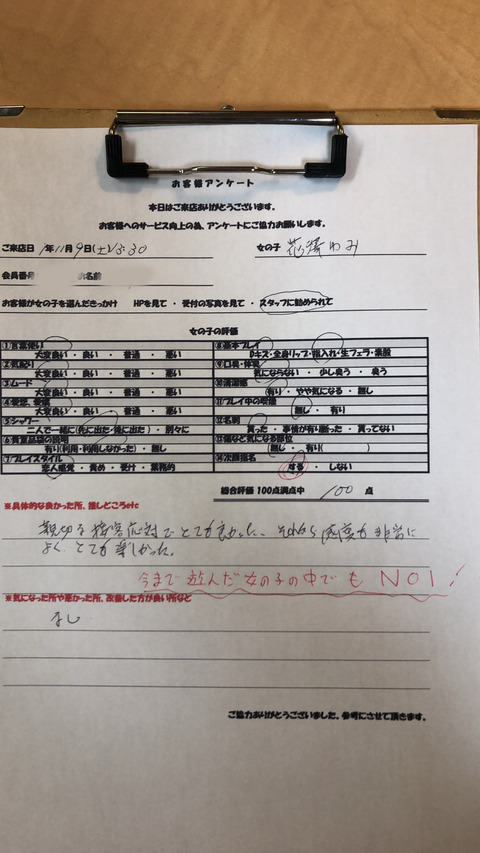 お客様アンケート
本日はご来店ありがとうございます。
お客様へのサービス向上の為、アンケートにご協力お願いします。
ご来店日 1年11月9日(土)13:30 女の子
会員番号 お名前
お客様が女の子を選んだきっかけ HPを見て ・ 受付の写真を見て ・ スタッフに勧められて
女の子の評価
①言葉使い
大変良い ・ 良い ・ 普通 ・ 悪い
②気配り
大変良い ・ 良い ・ 普通 ・ 悪い
③ムード
大変良い ・ 良い ・ 普通 ・ 悪い
④愛想、愛嬌
大変良い ・ 良い ・ 普通 ・ 悪い
⑤シャワー
二人で一緒に(先に出た・後に出た) ・ 別々に
⑥貴重品袋の説明
有り(利用・利用しなかった) ・ 無し
⑦プレイスタイル
恋人感覚 ・ 責め ・ 受け ・ 業務的
⑧基本プレイ
Dキス・全身リップ・指入れ・生フェラ・素股
⑨口臭・体臭
気にならない ・ 少し臭う ・ 臭う
⑩清潔感
有り ・ やや気になる ・ 無し
⑪プレイ中の喫煙
無し ・ 有り
⑫名刺
貰った ・ 事情が有り断った ・ 貰ってない
⑬傷など気になる部位
無し ・ 有り( )
⑭次回指名
する ・ しない
総合評価 100点満点中 100 点
※具体的な良かった所、推しどころetc
親切な接客応対でとても良かった、それから感度も非常に
よく、とても楽しかった。
今まで遊んだ女の子の中でも NO1!
※気になった所や悪かった所、改善した方が良い所など
なし
ご協力ありがとうございました。参考にさせて頂きます。